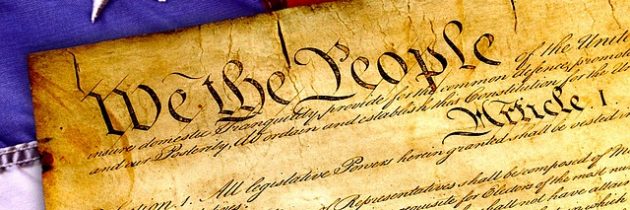 We the People of the United
insure domestic Tranquility, provide for the common defence, promote
and our Posterity, do ordain and establish this Constitution for the Un
Article 1.
Section 1. All legislative Powers herein granted shall be vested in
of Representatives shall be composed of M
requisite for Electors of the most nu
shall not have attain
when